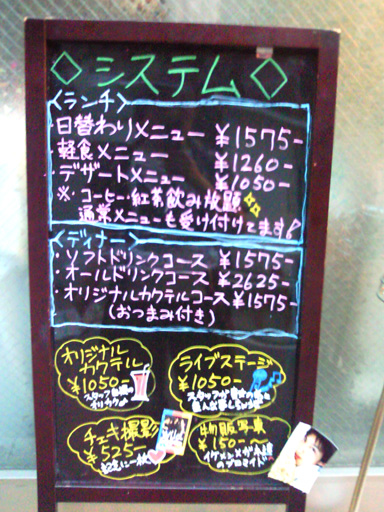 ◇システム◇
〈ランチ〉
・日替わりメニュー ¥1575-
・軽食メニュー ¥1260-
・デザートメニュー ¥1050-
※ コーヒー・紅茶飲み放題
通常メニューも受け付けてます!
〈ディナー〉
・ソフトドリンクコース ¥1575-
・オールドリンクコース ¥2625-
・オリジナルカクテルコース ¥1575-
(おつまみ付き)
オリジナルカクテル
¥1050-
ライブステージ
¥1050-
チェキ撮影
¥525-
記念に一枚
物販写真
¥150-〜
イケメン
のブロマイド